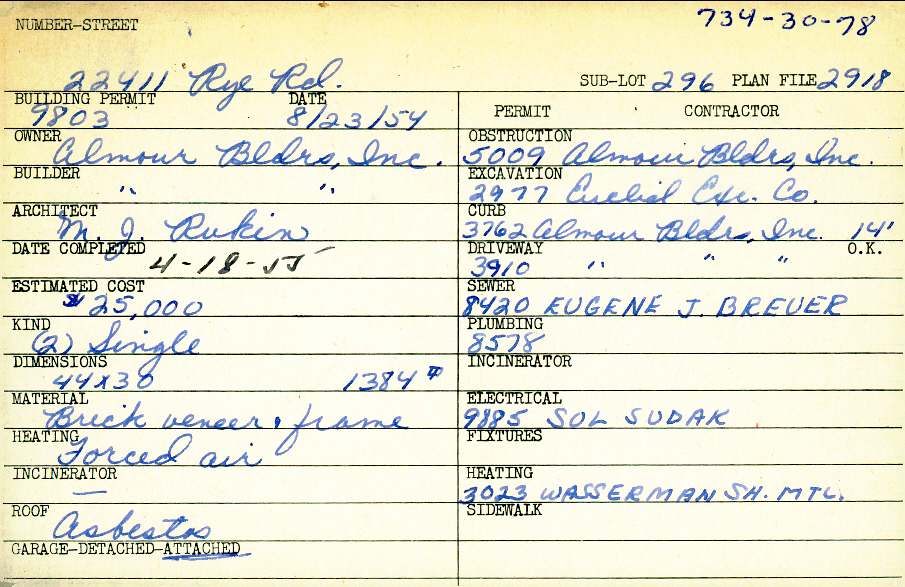 734-30-78
NUMBER-STREET
22411 Rye Rd.
SUB-LOT 296 PLAN FILE 2918
BUILDING PERMIT DATE
9803 8/23/54
PERMIT CONTRACTOR
OWNER
Almour Bldrs, Inc.
OBSTRUCTION
5009 Almour Bldrs, Inc.
BUILDER
" "
EXCAVATION
2977 Euclid Exc. Co.
ARCHITECT
M. J. Rukin
CURB
3762 Almour Bldrs, Inc. 14'
DATE COMPLETED
4-18-55
DRIVEWAY O.K.
3910 " " "
ESTIMATED COST
$25,000
SEWER
8420 EUGENE J. BREUER
KIND
(2) Single
PLUMBING
8578
DIMENSIONS
44x30 1384
INCINERATOR
MATERIAL
Brick veneer & frame
ELECTRICAL
9885 SOL SUDAK
HEATING
Forced air
FIXTURES
INCINERATOR
—
HEATING
3023 WASSERMAN SH. MTL.
ROOF
Asbestos
SIDEWALK
GARAGE-DETACHED-ATTACHED